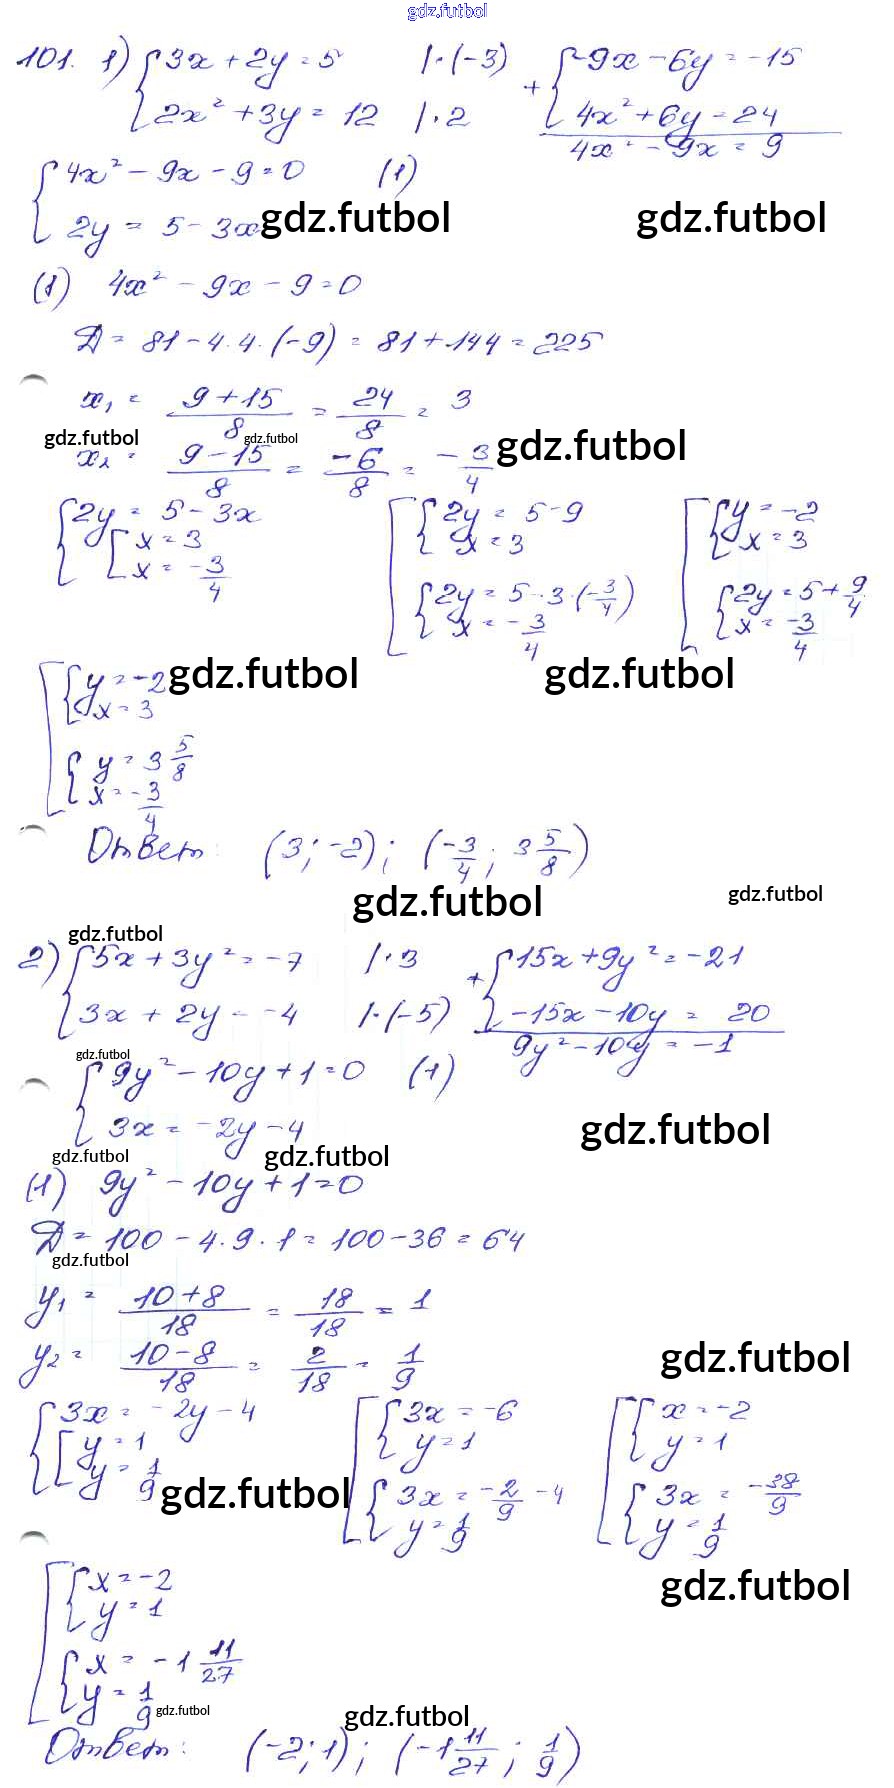 gdz.futbol
101. 1) {3x + 2y = 5 | · (-3) + {-9x - 6y = -15
{2x² + 3y = 12 | · 2 {4x² + 6y = 24
4x² - 9x = 9
{4x² - 9x - 9 = 0 (1)
{2y = 5 - 3x
gdz.futbol gdz.futbol
(1) 4x² - 9x - 9 = 0
Д = 81 - 4·4·(-9) = 81 + 144 = 225
x₁ = (9+15)/8 = 24/8 = 3
gdz.futbol gdz.futbol gdz.futbol
x₂ = (9-15)/8 = -6/8 = -3/4
{2y = 5 - 3x [{2y = 5 - 9 [{y = -2
[x = 3 {x = 3 {x = 3
[x = -3/4 {2y = 5 - 3·(-3/4) {2y = 5 + 9/4
{x = -3/4 {x = -3/4
gdz.futbol gdz.futbol
[{y = -2
{x = 3
{y = 3 5/8
{x = -3/4
Ответ: (3; -2); (-3/4; 3 5/8)
gdz.futbol gdz.futbol
gdz.futbol
2) {5x + 3y² = -7 | · 3 + {15x + 9y² = -21
{3x + 2y = -4 | · (-5) {-15x - 10y = 20
9y² - 10y = -1
gdz.futbol
{9y² - 10y + 1 = 0 (1)
{3x = -2y - 4
gdz.futbol
gdz.futbol gdz.futbol
(1) 9y² - 10y + 1 = 0
Д = 100 - 4·9·1 = 100 - 36 = 64
gdz.futbol
y₁ = (10+8)/18 = 18/18 = 1
y₂ = (10-8)/18 = 2/18 = 1/9
gdz.futbol
{3x = -2y - 4 [{3x = -6 [{x = -2
[y = 1 {y = 1 {y = 1
[y = 1/9 {3x = -2/9 - 4 {3x = -38/9
{y = 1/9 {y = 1/9
gdz.futbol
gdz.futbol
[{x = -2
{y = 1
{x = -1 11/27
{y = 1/9
gdz.futbol gdz.futbol
Ответ: (-2; 1); (-1 11/27; 1/9)